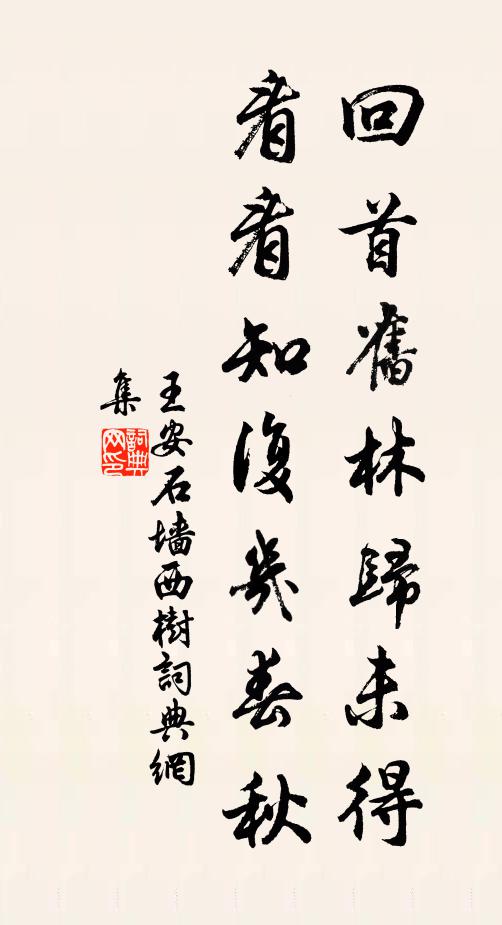 回首舊林歸未得
看看知復幾春秋
王安石墙西樹詞典網
集
詞典網印